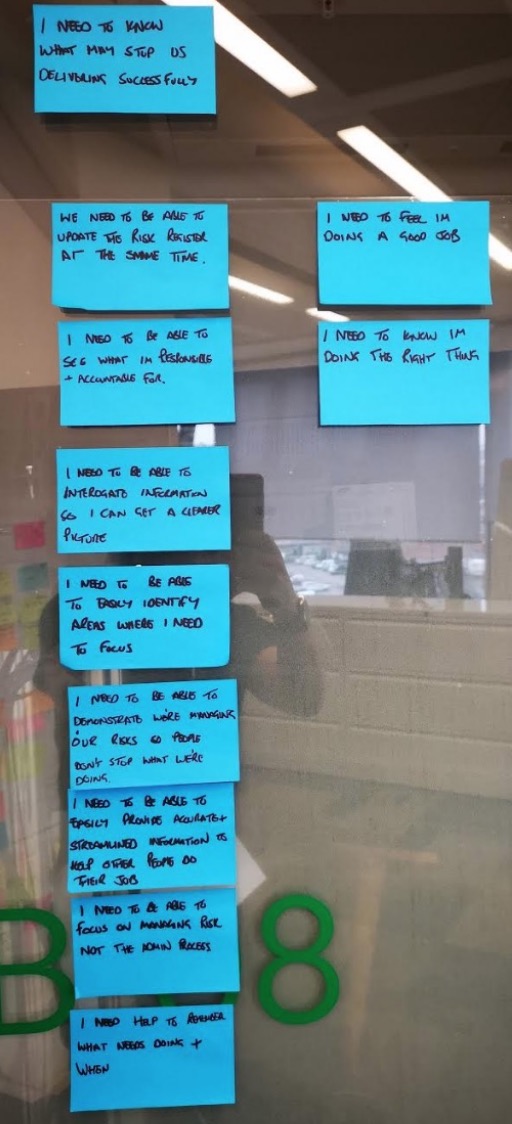 I NEED TO KNOW
WHAT MAY STOP US
DELIVERING SUCCESSFULLY
WE NEED TO BE ABLE TO
UPDATE THE RISK REGISTER
AT THE SAME TIME.
I NEED TO BE ABLE TO
SEE WHAT IM RESPONSIBLE
+ ACCOUNTABLE FOR.
I NEED TO BE ABLE TO
INTEROGATE INFORMATION
SO I CAN GET A CLEARER
PICTURE
I NEED TO BE ABLE
TO EASILY IDENTIFY
AREAS WHERE I NEED
TO FOCUS
I NEED TO BE ABLE TO
DEMONSTRATE WE'RE MANAGING
OUR RISKS SO PEOPLE
DON'T STOP WHAT WE'RE
DOING.
I NEED TO BE ABLE TO
EASILY PROVIDE ACCURATE +
STREAMLINED INFORMATION TO
HELP OTHER PEOPLE DO
THEIR JOB
I NEED TO BE ABLE TO
FOCUS ON MANAGING RISK
NOT THE ADMIN PROCESS
I NEED HELP TO REMEMBER
WHAT NEEDS DOING +
WHEN
I NEED TO FEEL IM
DOING A GOOD JOB
I NEED TO KNOW IM
DOING THE RIGHT THING
B 8